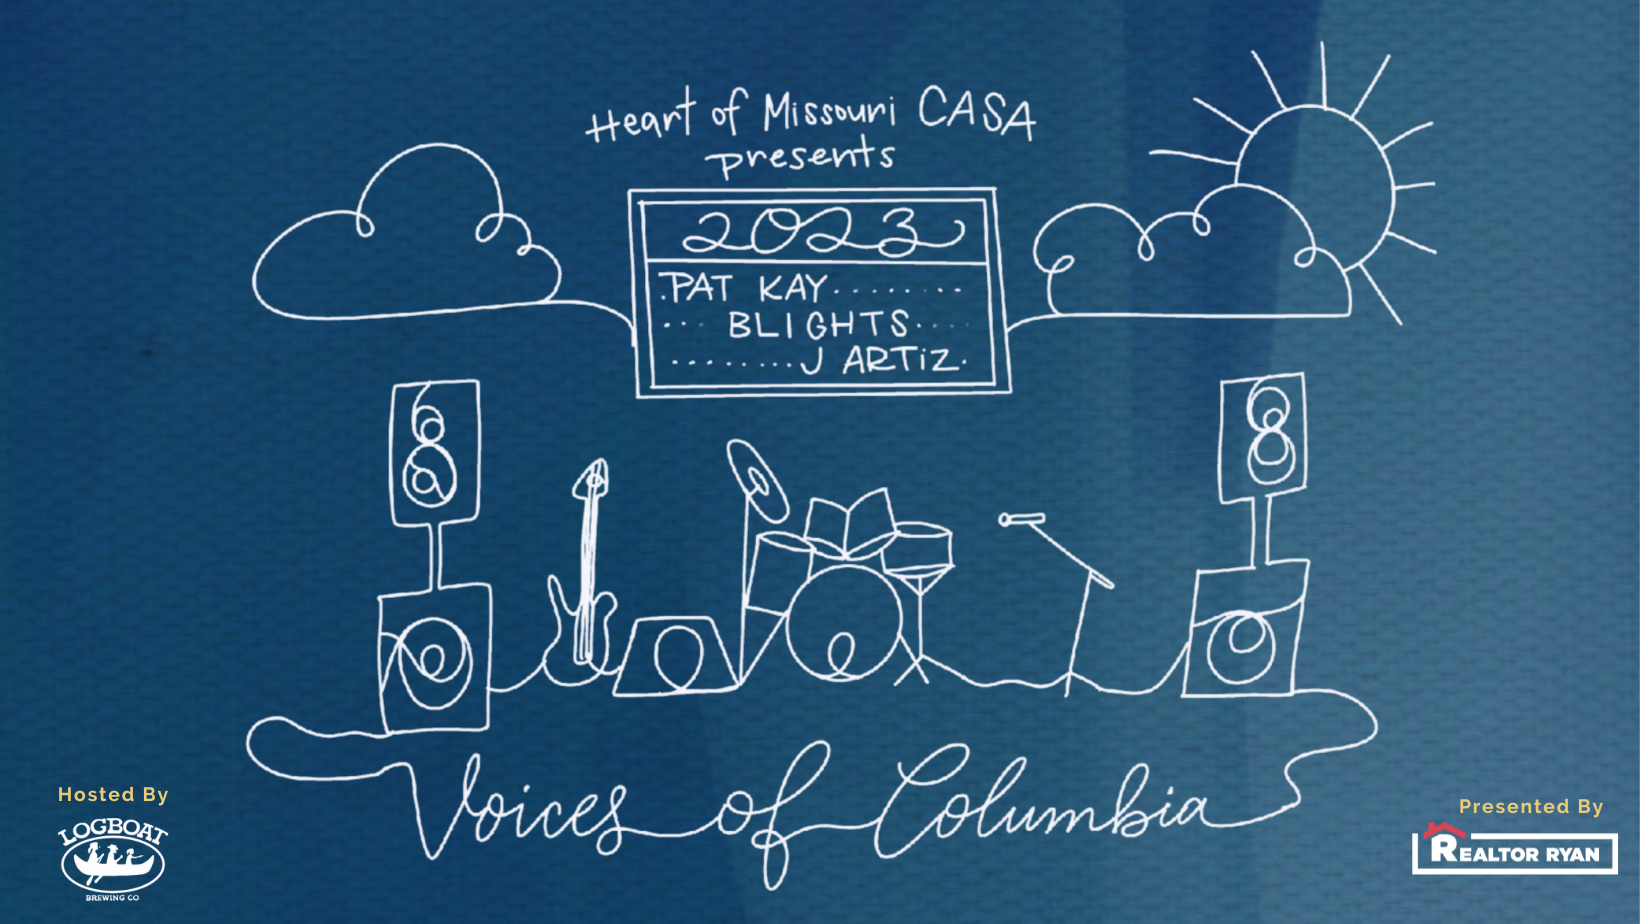 Heart of Missouri CASA
presents
2023
.PAT KAY........
... BLIGHTS....
........J ARTiZ.
Voices of Columbia
Hosted By
LOGBOAT
BREWING CO
Presented By
REALTOR RYAN